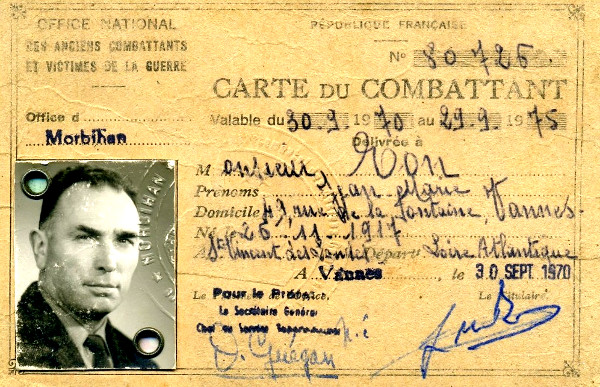 OFFICE NATIONAL
DES ANCIENS COMBATTANTS
ET VICTIMES DE LA GUERRE
RÉPUBLIQUE FRANÇAISE
No 80726.
CARTE DU COMBATTANT
Office d
Morbihan
Valable du 30.9.1970 au 29.9.1975
Délivrée à
Monsieur,
Prénoms Jean Marie
Domicile 49, rue de la fontaine, Vannes
Né le 26.11.1917
A St Vincent des Landes Départ Loire Atlantique
A Vannes, le 30 SEPT. 1970
Pour le Préfet
Le Secrétaire Général
Chef du Service
Le Titulaire,
D. Guégan
MORBIHAN